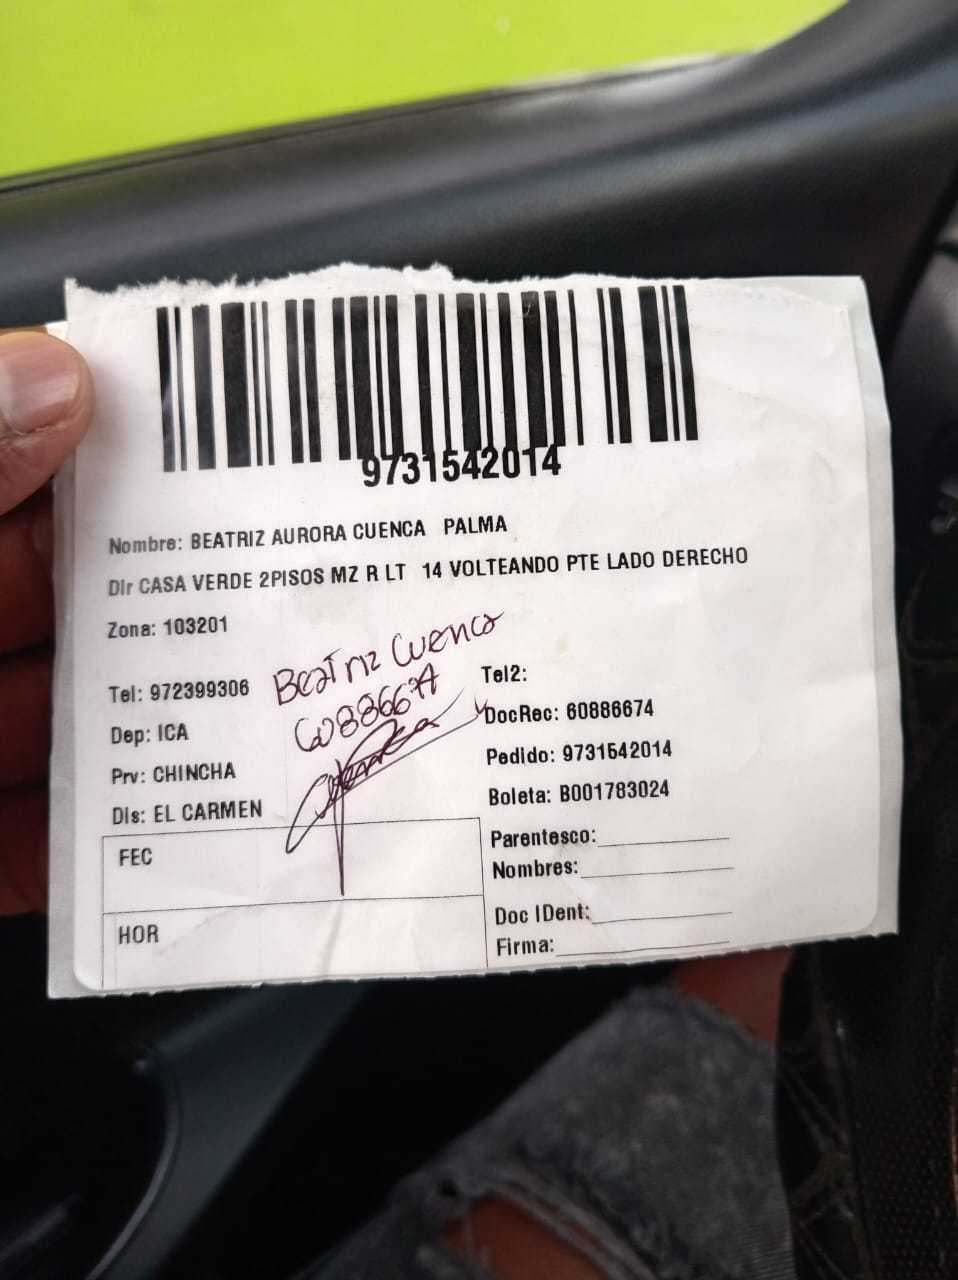 9731542014
Nombre: BEATRIZ AURORA CUENCA PALMA
Dir CASA VERDE 2PISOS MZ R LT 14 VOLTEANDO PTE LADO DERECHO
Zona: 103201
Beatriz Cuenca
Tel: 972399306
Tel2:
60886674
Dep: ICA
DocRec: 60886674
Prv: CHINCHA
Pedido: 9731542014
Dis: EL CARMEN
Boleta: B001783024
FEC
Parentesco:
Nombres:
HOR
Doc IDent:
Firma: